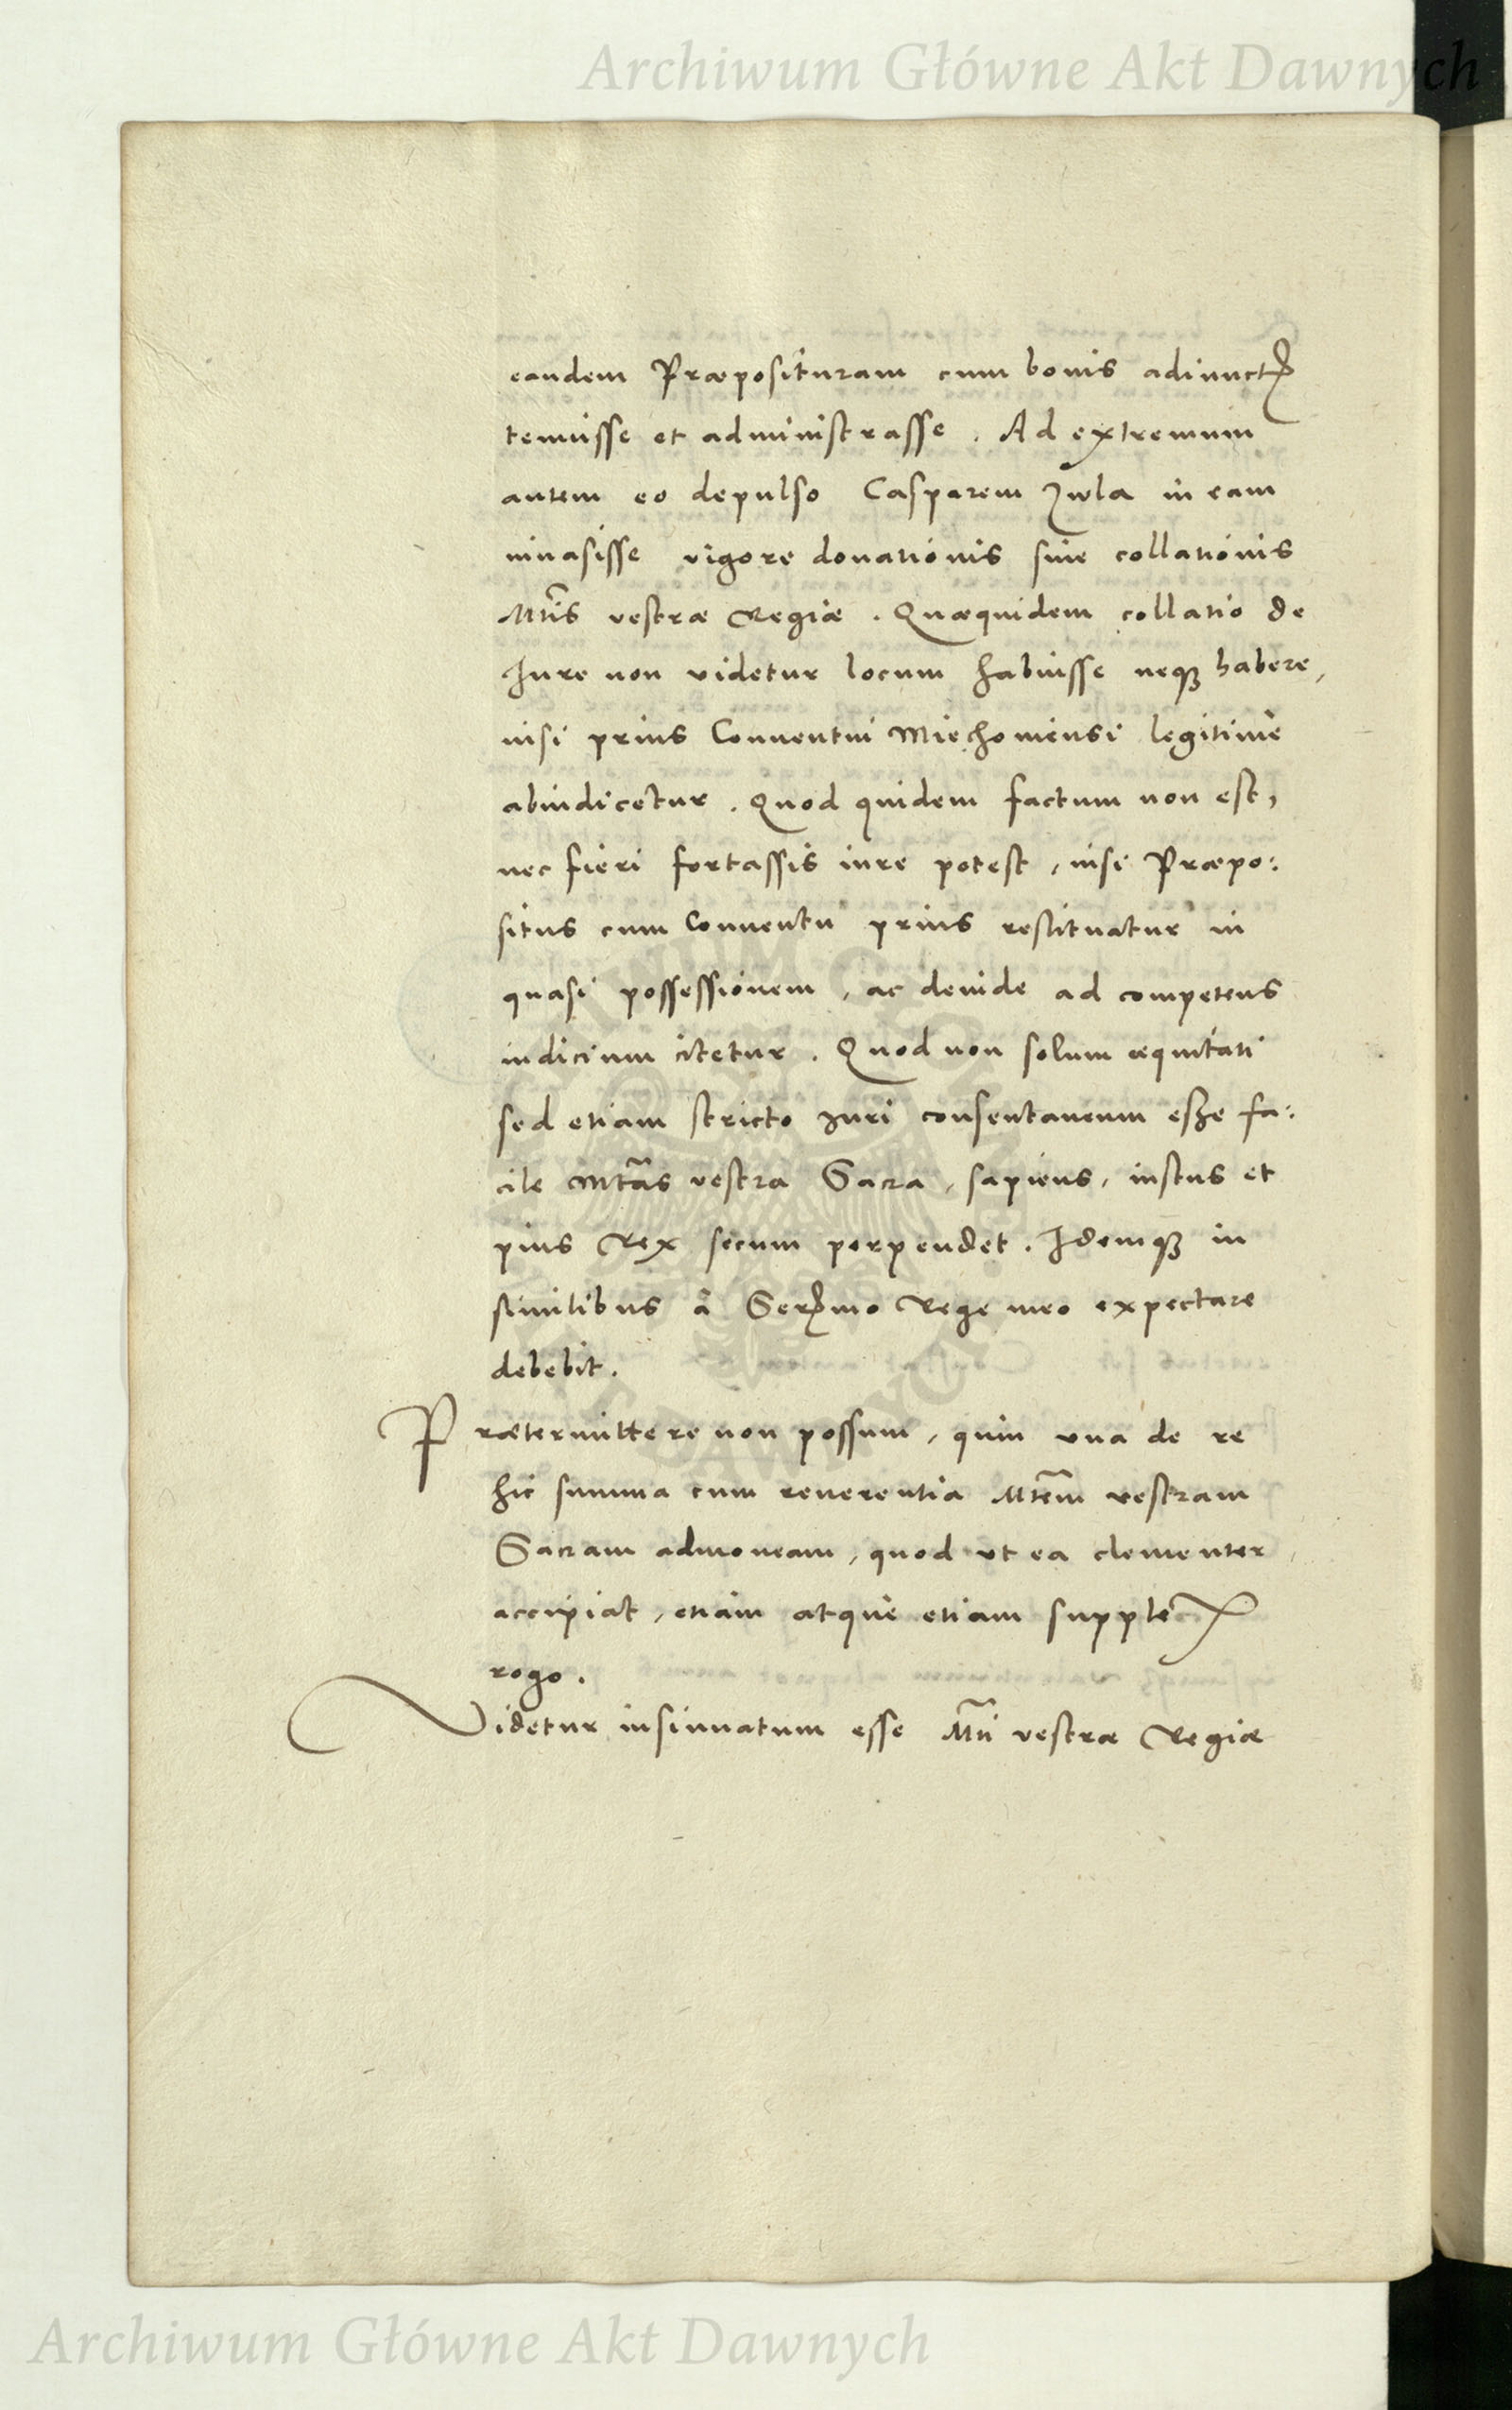 Archiwum Główne Akt Dawnych
eandem Præposituram cum bonis adiunctꝭ
tenuisse et administrasse. Ad extremum
autem eo depulso Casparem Zwla in eam
inuasisse vigore donationis siue collationis
Mtis vestræ Regiæ. Quæquidem collatio de
Iure non videtur locum habuisse neqꝫ habere,
nisi prius Conuentui Miechouiensi legitime
abiudicetur. Quod quidem factum non est,
nec fieri fortassis iure potest, nisi Præpo:
situs cum Conuentu prius restituatur in
quasi possessionem, ac deinde ad competens
iudicium citetur. Quod non solum æquitati
sed etiam stricto Iuri consentaneum esze fa:
cile Mtas vestra Sacra, sapiens, iustus et
pius Rex secum perpendet. Idemqꝫ in
similibus à Serꝭmo Rege meo expectare
debebit.
Prætermittere non possum, quin vna de re
hic summa cum reuerentia Mtem vestram
Sacram admoneam, quod vt ea clementer
accipiat, etiam atque etiam supplex
rogo.
Videtur insinuatum esse Mti vestræ Regiæ
Archiwum Główne Akt Dawnych